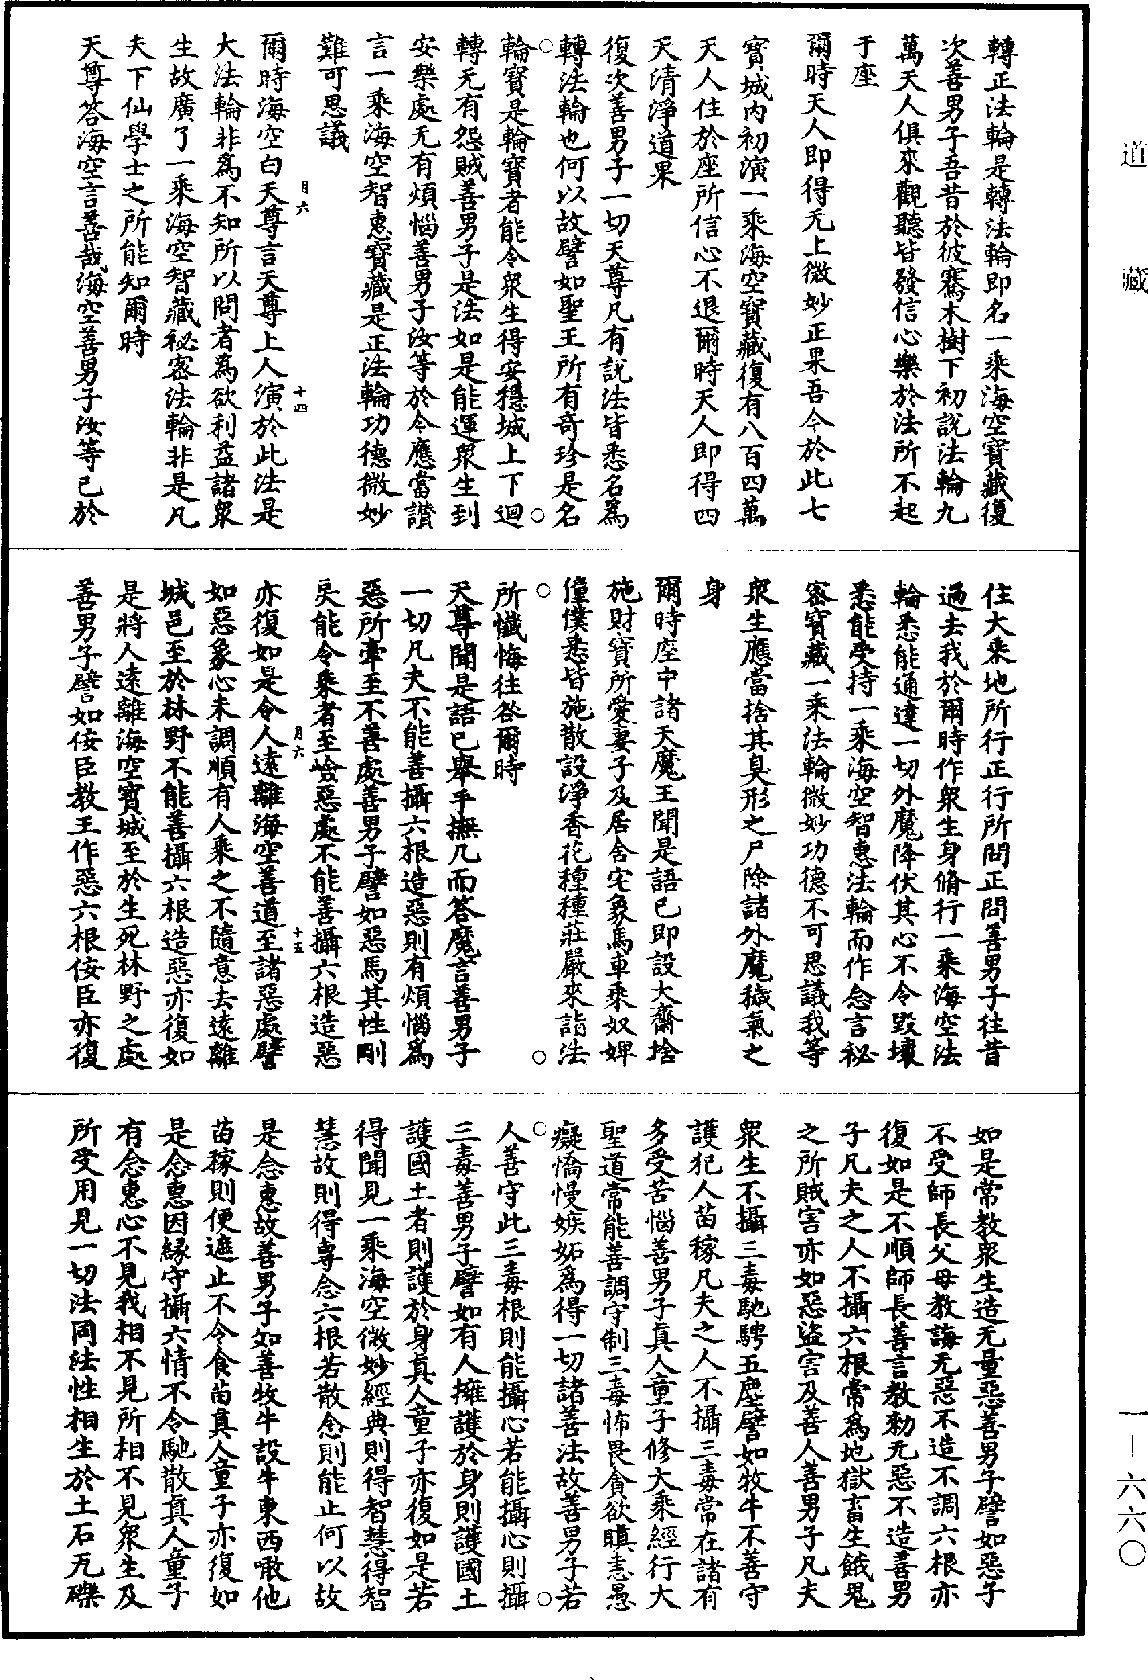 道藏
一—六六〇
轉正法輪是轉法輪即名一乘海空寶藏復
次善男子吾昔於彼騫木樹下初說法輪九
萬天人俱來觀聽皆發信心樂於法所不起
于座
爾時天人即得无上微妙正果吾今於此七
寶城內初演一乘海空寶藏復有八百四萬
天人住於座所信心不退爾時天人即得四
天清淨道果
復次善男子一切天尊凡有說法皆悉名爲
轉法輪也何以故譬如聖王所有奇珍是名
輪寶是輪寶者能令衆生得安穩城上下迴
轉无有怨賊善男子是法如是能運衆生到
安樂處无有煩惱善男子汝等於今應當讚
言一乘海空智惠寶藏是正法輪功德微妙
難可思議
月六 十四
爾時海空白天尊言天尊上人演於此法是
大法輪非爲不知所以問者爲欲利益諸衆
生故廣了一乘海空智藏祕密法輪非是凡
夫下仙學士之所能知爾時
天尊答海空言善哉海空善男子汝等已於
住大乘地所行正行所問正問善男子往昔
過去我於爾時作衆生身脩行一乘海空法
輪悉能通達一切外魔降伏其心不令毀壞
悉能受持一乘海空智惠法輪而作念言祕
密寶藏一乘法輪微妙功德不可思議我等
衆生應當捨其臭形之尸除諸外魔穢氣之
身
爾時座中諸天魔王聞是語已即設大齋捨
施財寶所愛妻子及居舍宅象馬車乘奴婢
僮僕悉皆施散設淨香花種種莊嚴來詣法
所懺悔往咎爾時
天尊聞是語已舉手撫几而答魔言善男子
一切凡夫不能善攝六根造惡則有煩惱爲
惡所牽至不善處善男子譬如惡馬其性剛
戾能令乘者至嶮惡處不能善攝六根造惡
月六 十五
亦復如是令人遠離海空善道至諸惡處譬
如惡象心未調順有人乘之不隨意去遠離
城邑至於林野不能善攝六根造惡亦復如
是將人遠離海空寶城至於生死林野之處
善男子譬如佞臣教王作惡六根佞臣亦復
如是常教衆生造无量惡善男子譬如惡子
不受師長父母教誨无惡不造不調六根亦
復如是不順師長善言教勑无惡不造善男
子凡夫之人不攝六根常爲地獄畜生餓鬼
之所賊害亦如惡盜害及善人善男子凡夫
衆生不攝三毒馳騁五塵譬如牧牛不善守
護犯人苗稼凡夫之人不攝三毒常在諸有
多受苦惱善男子真人童子修大乘經行大
聖道常能善調守制三毒怖畏貪欲瞋恚愚
癡憍慢嫉妬爲得一切諸善法故善男子若
人善守此三毒根則能攝心若能攝心則攝
三毒善男子譬如有人擁護於身則護國土
護國土者則護於身真人童子亦復如是若
得聞見一乘海空微妙經典則得智慧得智
慧故則得專念六根若散念則能止何以故
是念惠故善男子如善牧牛設牛東西噉他
苗稼則便遮止不令食苗真人童子亦復如
是念惠因緣守攝六情不令馳散真人童子
有念惠心不見我相不見所相不見衆生及
所受用見一切法同法性相生於土石瓦礫